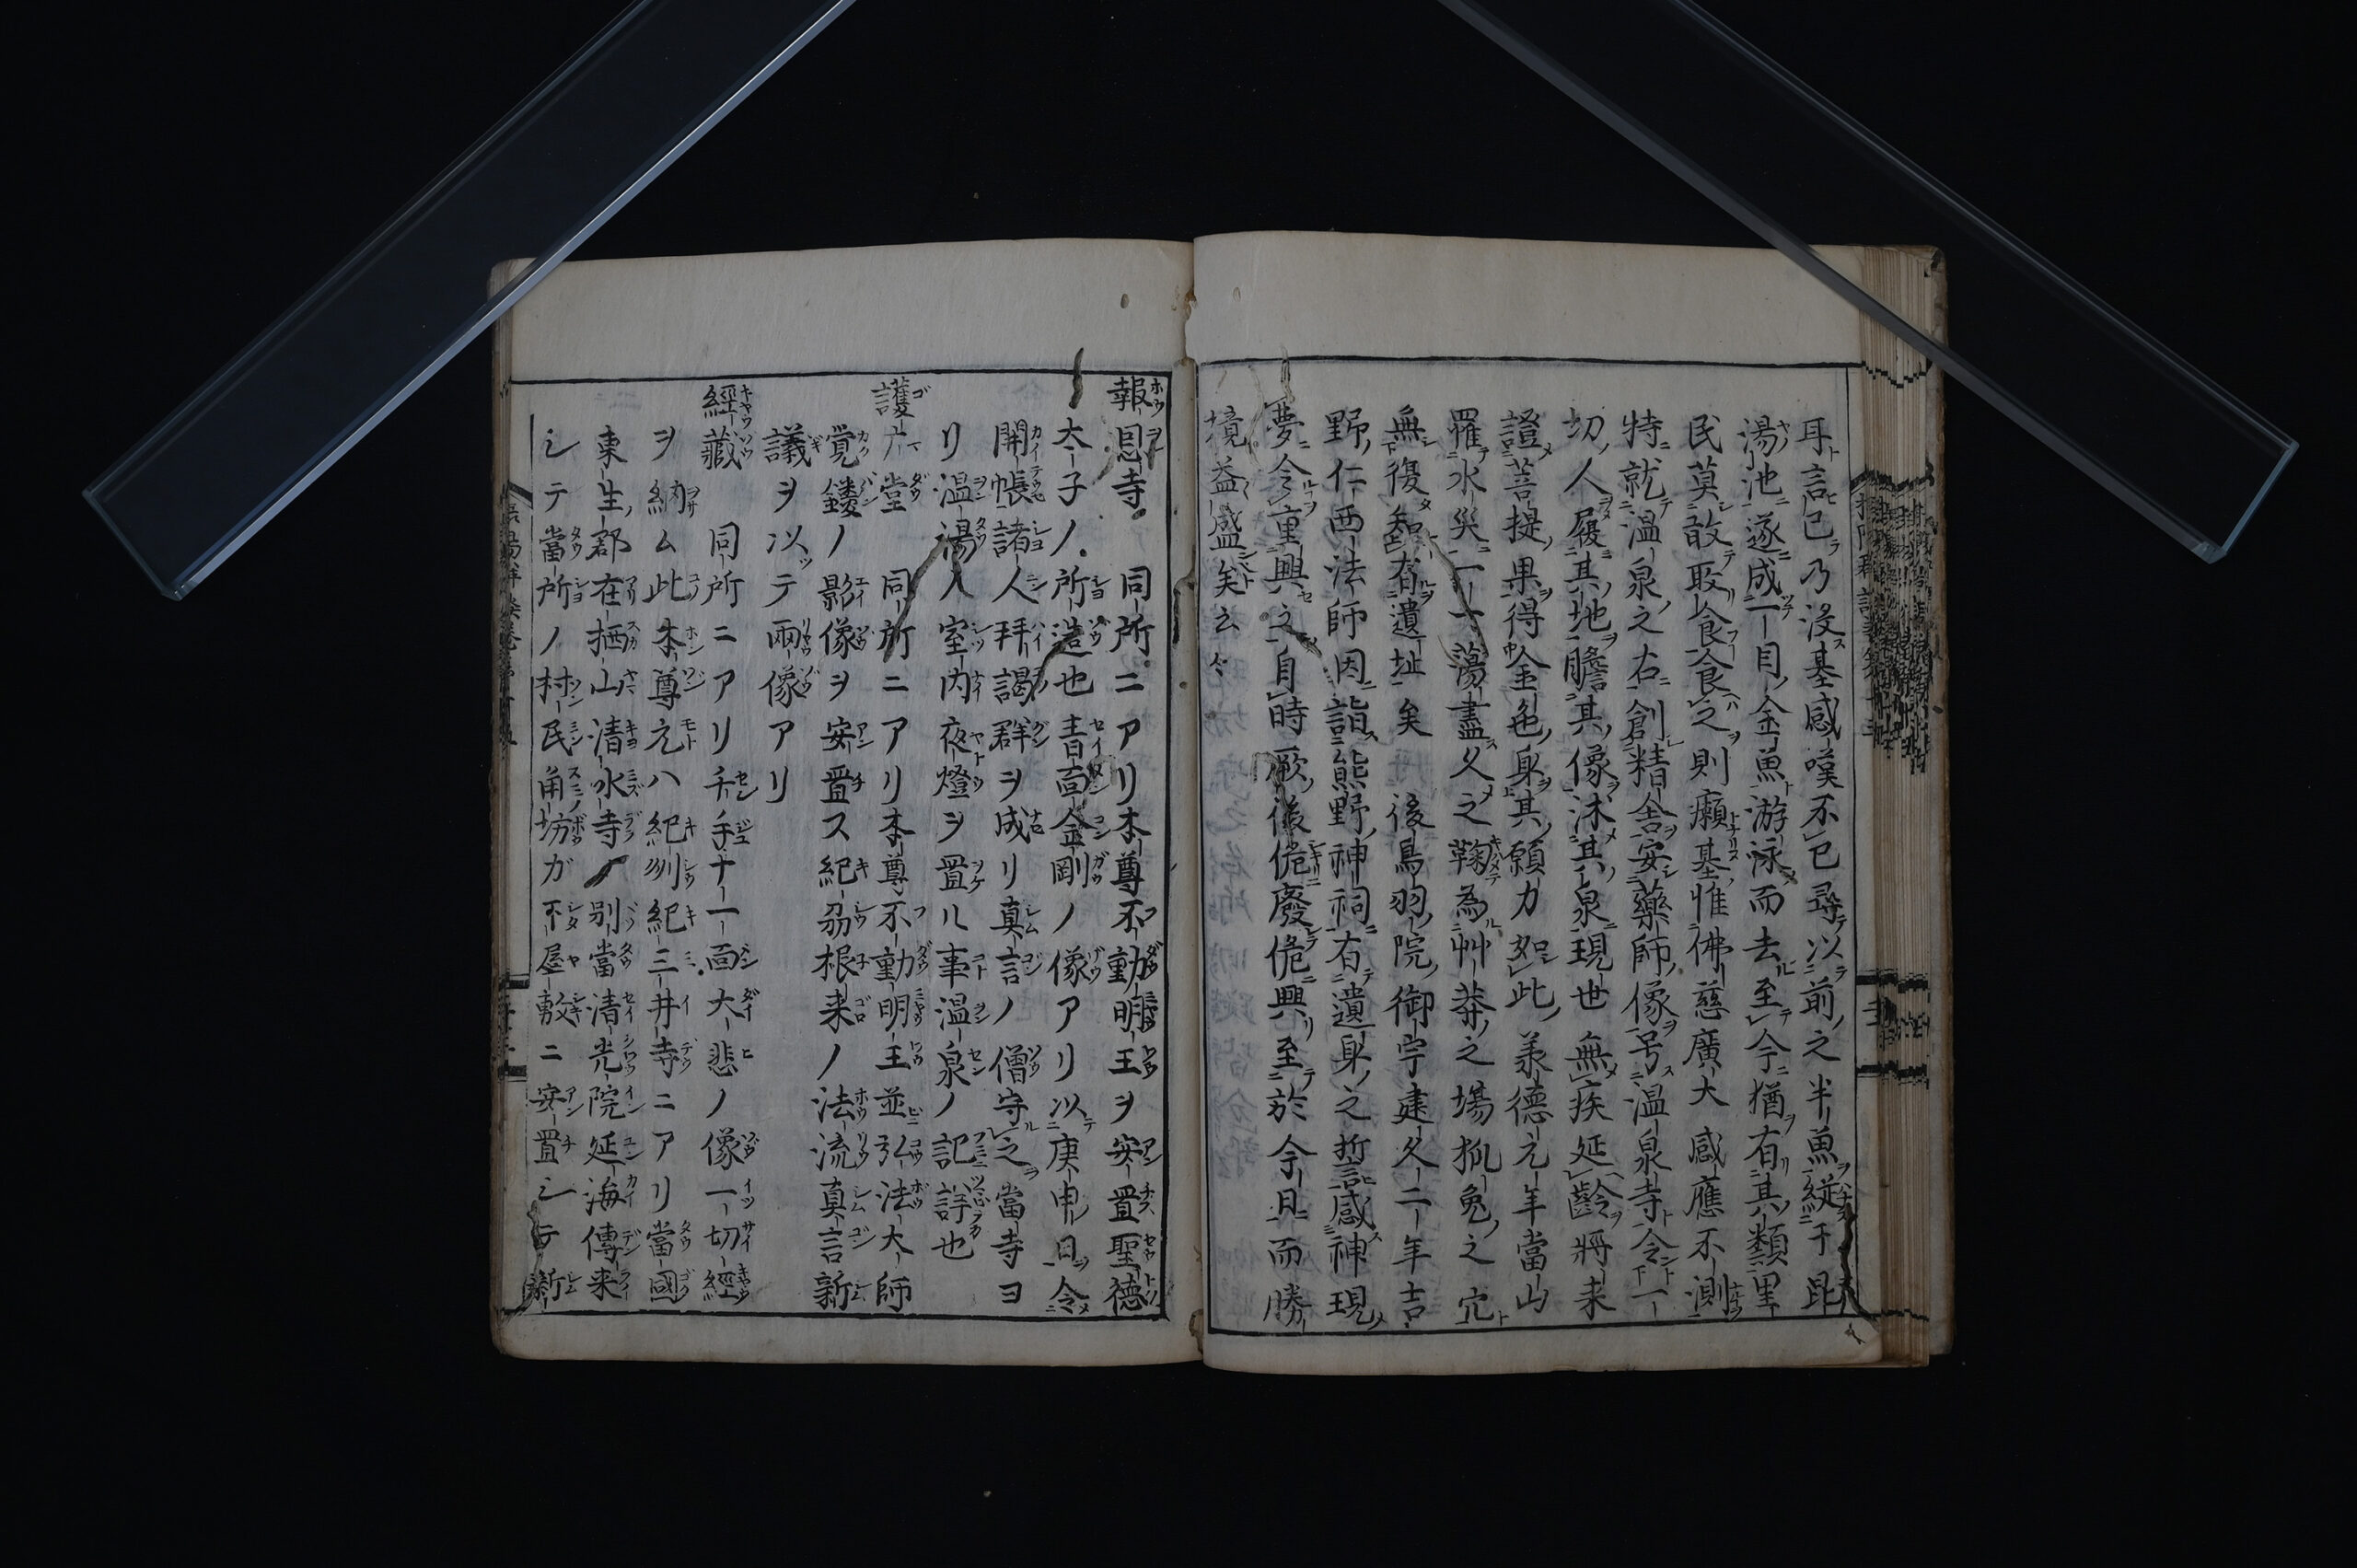 耳言已乃沒基感嘆不已尋以前之半魚縦于昆
湯池遂成一目金魚游泳而去至今猶有其類里
民莫敢取食食之則癩基惟佛慈廣大感應不測
特就温泉之右創精舎安藥師像号温泉寺令一
切人履其地瞻其像沐其泉現世無疾延齡將来
證菩提果得金色身其願力如此羕德元年當山
罹水災一一蕩盡久之鞠為艸莽之場狐兔之穴
無復有遺址矣後鳥羽院御宇建久二年吉
野仁西法師因詣熊野神祠有遺身之誓感神現
夢令重興之自時厥後俺廢俺興至於今日而勝
境益盛矣云々
報恩寺同所ニアリ本尊不動明王ヲ安置聖德
太子ノ所造也青面金剛ノ像アリ以庚申日令
開帳諸人拜謁群ヲ成リ真言ノ僧守之當寺ヨ
リ温湯入室内夜燈ヲ置ル事温泉ノ記詳也
護广堂同所ニアリ本尊不動明王並弘法大師
覚鑁ノ影像ヲ安置ス紀刕根来ノ法流真言新
議ヲ以テ兩像アリ
經藏同所ニアリ千手十一面大悲ノ像一切經
ヲ納ム此本尊元ハ紀刕紀三井寺ニアリ當國
東生郡在栖山清水寺ノ別當清光院延海傳来
シテ當所ノ村民角坊ガ下屋敷ニ安置シテ新